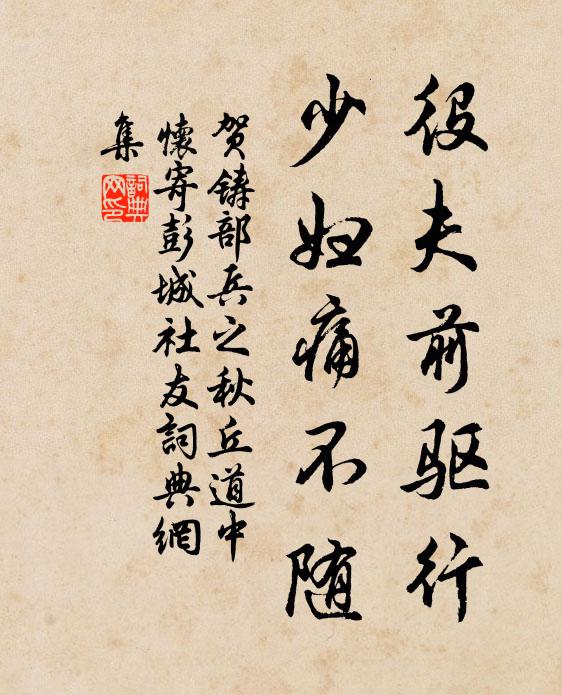 役夫前驱行
少妇痛不随
贺铸部兵之秋丘道中
懷寄彭城社友詞典網
集
詞典
网印